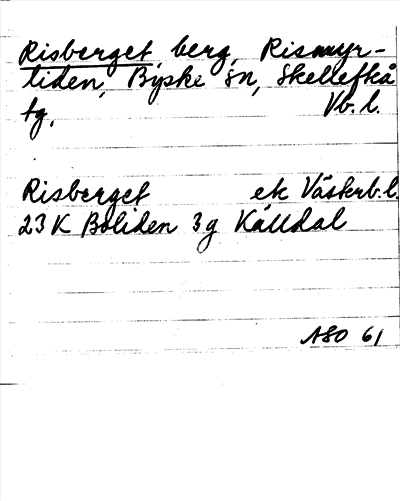 Risberget berg, Rismyr-
liden, Byske sn, Skellefteå
tg, Vb. l.
Risberget ek Västerb.l.
23 K Boliden 3g Källdal
ASO 61